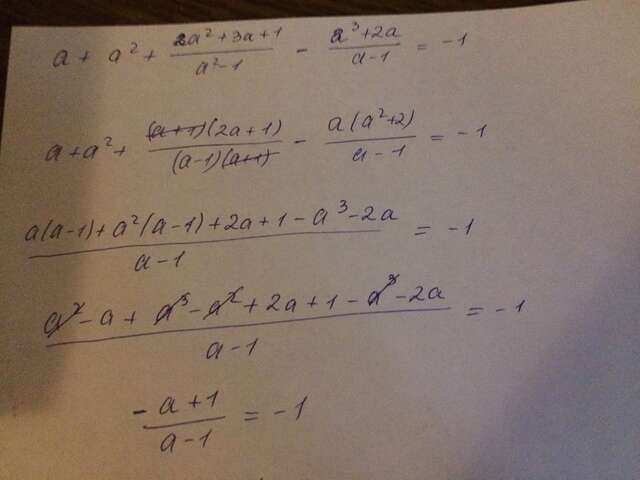 a + a² + (2a² + 3a + 1)/(a² - 1) - (a³ + 2a)/(a - 1) = -1
a + a² + ((a+1)(2a+1))/((a-1)(a+1)) - (a(a²+2))/(a-1) = -1
(a(a-1) + a²(a-1) + 2a + 1 - a³ - 2a)/(a-1) = -1
(a² - a + a³ - a² + 2a + 1 - a³ - 2a)/(a-1) = -1
(-a + 1)/(a - 1) = -1